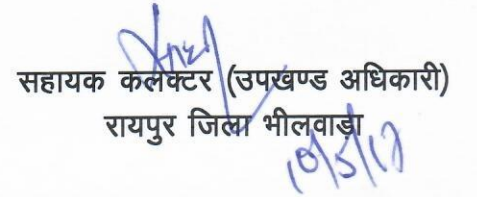 सहायक कलेक्टर (उपखण्ड अधिकारी)
रायपुर जिला भीलवाड़ा